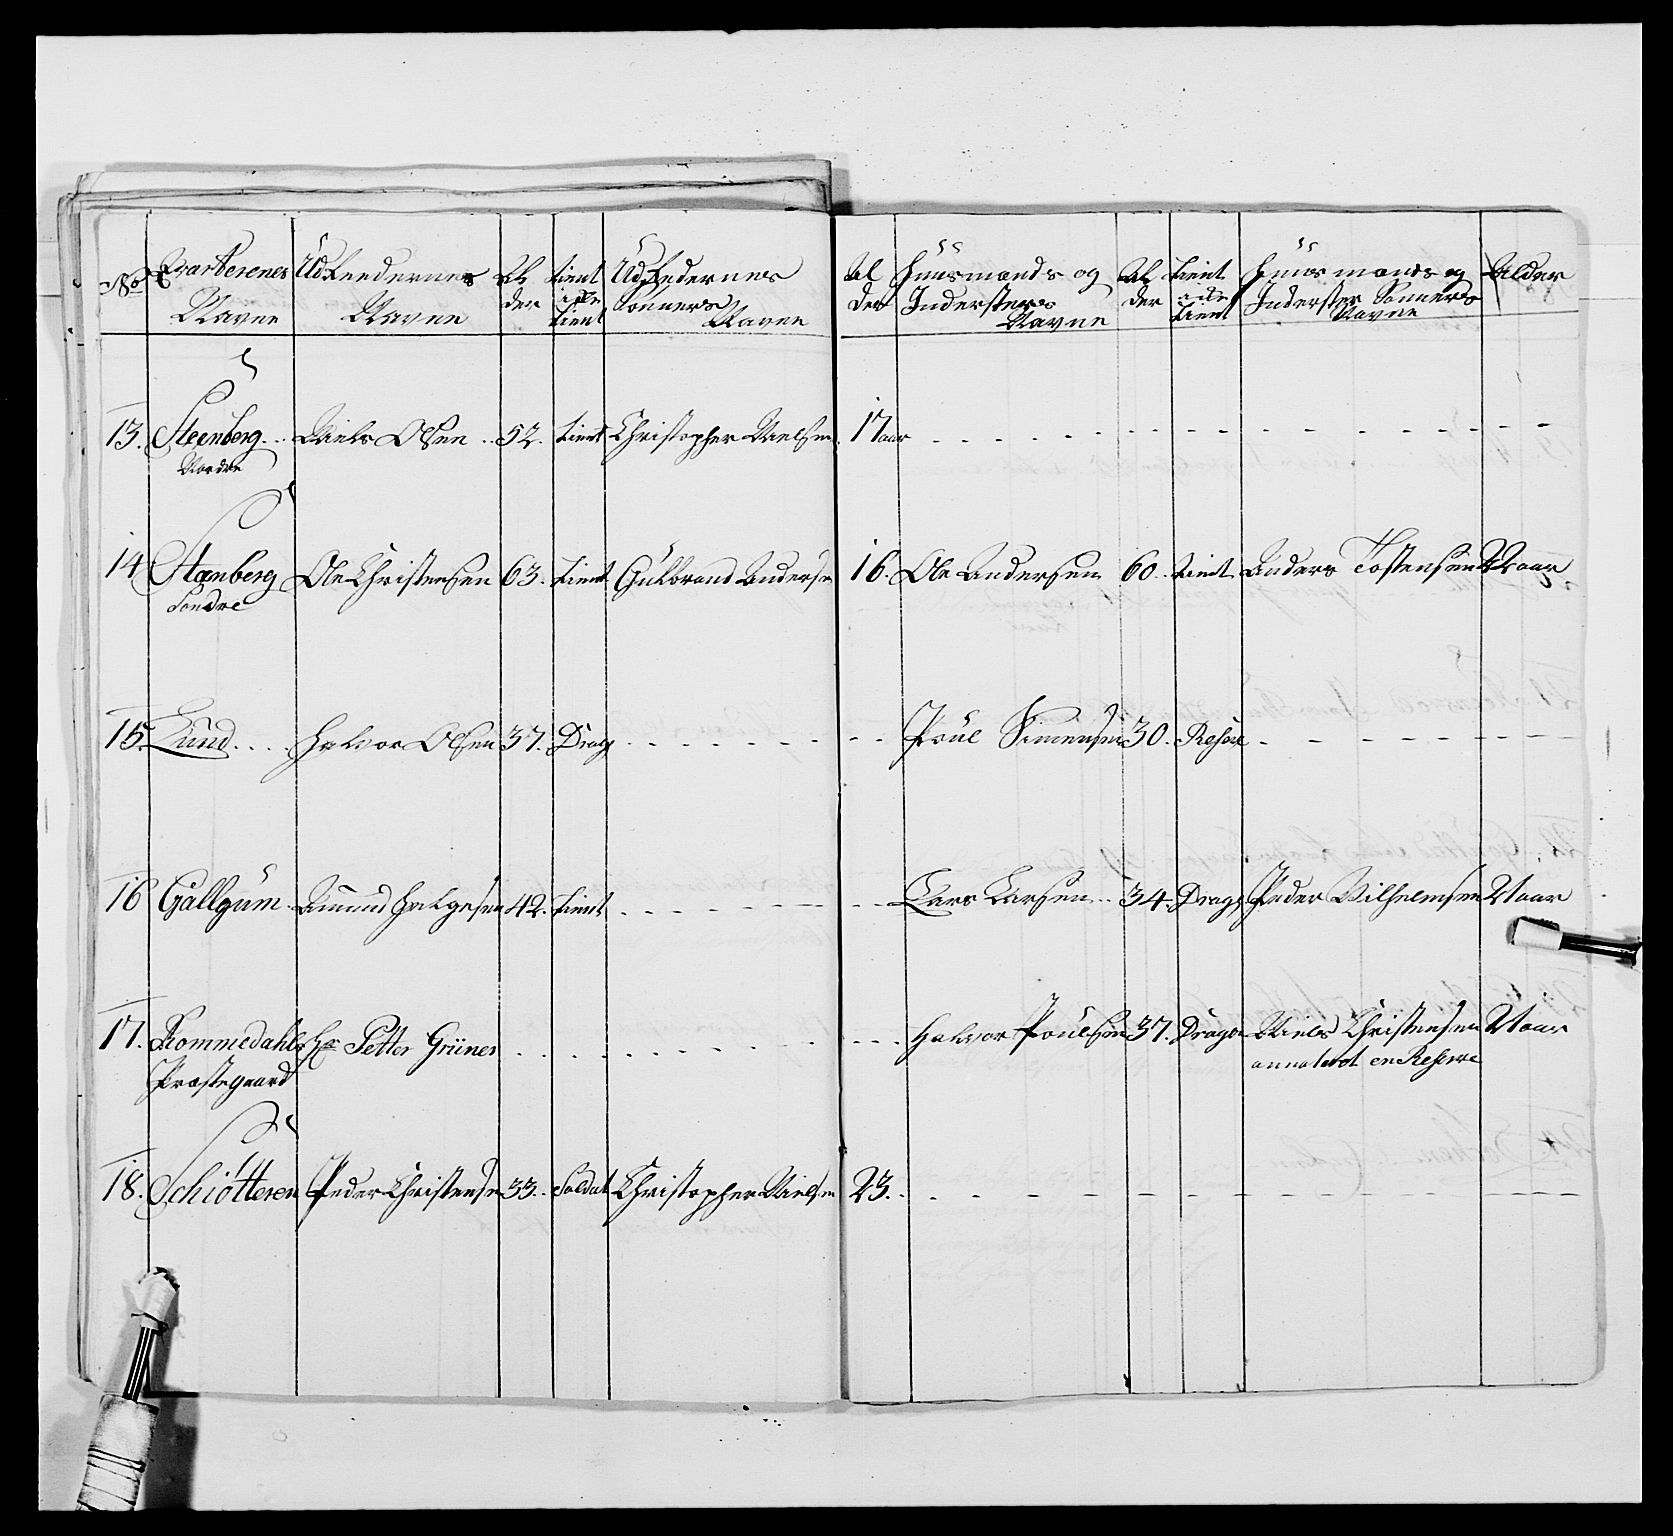 No Qvarterenes Navne | UdReedernes Navne | Al der | tient ell tient | UdRedernes Sønners Navne | Al der | Huusmænds og Indersters Navne | Al der | tient tient | Huusmænds og Inderster Sønners Navne | Alder
13. Steenberg Nordre | Niels Olsen | 52. | tient | Christopher Nielsen | 17 aar
14 Stenberg Søndre | Ole Christensen | 63. | tient | Gulbrand Andersen | 16. | Ole Andersen | 60. | tient | Anders Tostensen | aar
15. Lund | Halvor Olsen | 37. | Drag | Poul Simensen | 30. | Reserve
16 Gallgum | Amund Helgesen | 42. | tient | Lars Larsen | 34. | Drag | Peder Vilhelmsen | aar
17. Kommedahls Præstegaard | Hr Petter Grüner | Halvor Poulsen | 37. | Dragon | Niels Christensen | aar
annoteret en Reserve
18. Schiøtteren | Peder Christensen | 33. | Soldat | Christopher Nielsen | 23.